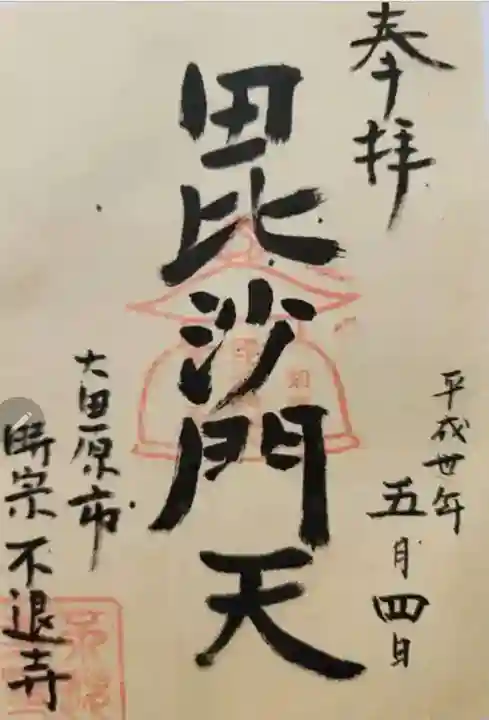 奉拝
平成廿年
五月四日
毘沙門天
大田原市
時宗不退寺